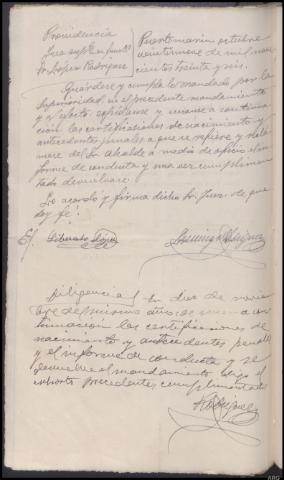 Providencia
Juez suplte en funcs
Sr. López Rodríguez
Puentemarin octubre
veintinueve de mil nove
cientos treinta y seis.
Guárdese y cumpla lo mandado por la
Superioridad en el precedente mandamiento
y al efecto expídanse y únanse a continua
ción las certificaciones de nacimiento y
antecedentes penales a que se refiere y recla
mese del Sr. Alcalde a medio de oficio el in
forme de conducta y una vez cumplimen
tado devuélvase.
Lo acordó y firma dicho Sr. Juez de que
doy fé.
E/ Liberato López
Domingo Rodríguez
Diligencia/ En dos de noviem
bre de mismo año se unen a con
tinuación las certificaciones de
nacimiento y antecedentes penales
y el informe de conducta y se
devuelve el mandamiento digo el
exhorto precedentes cumplimentado
Rodríguez
ARG